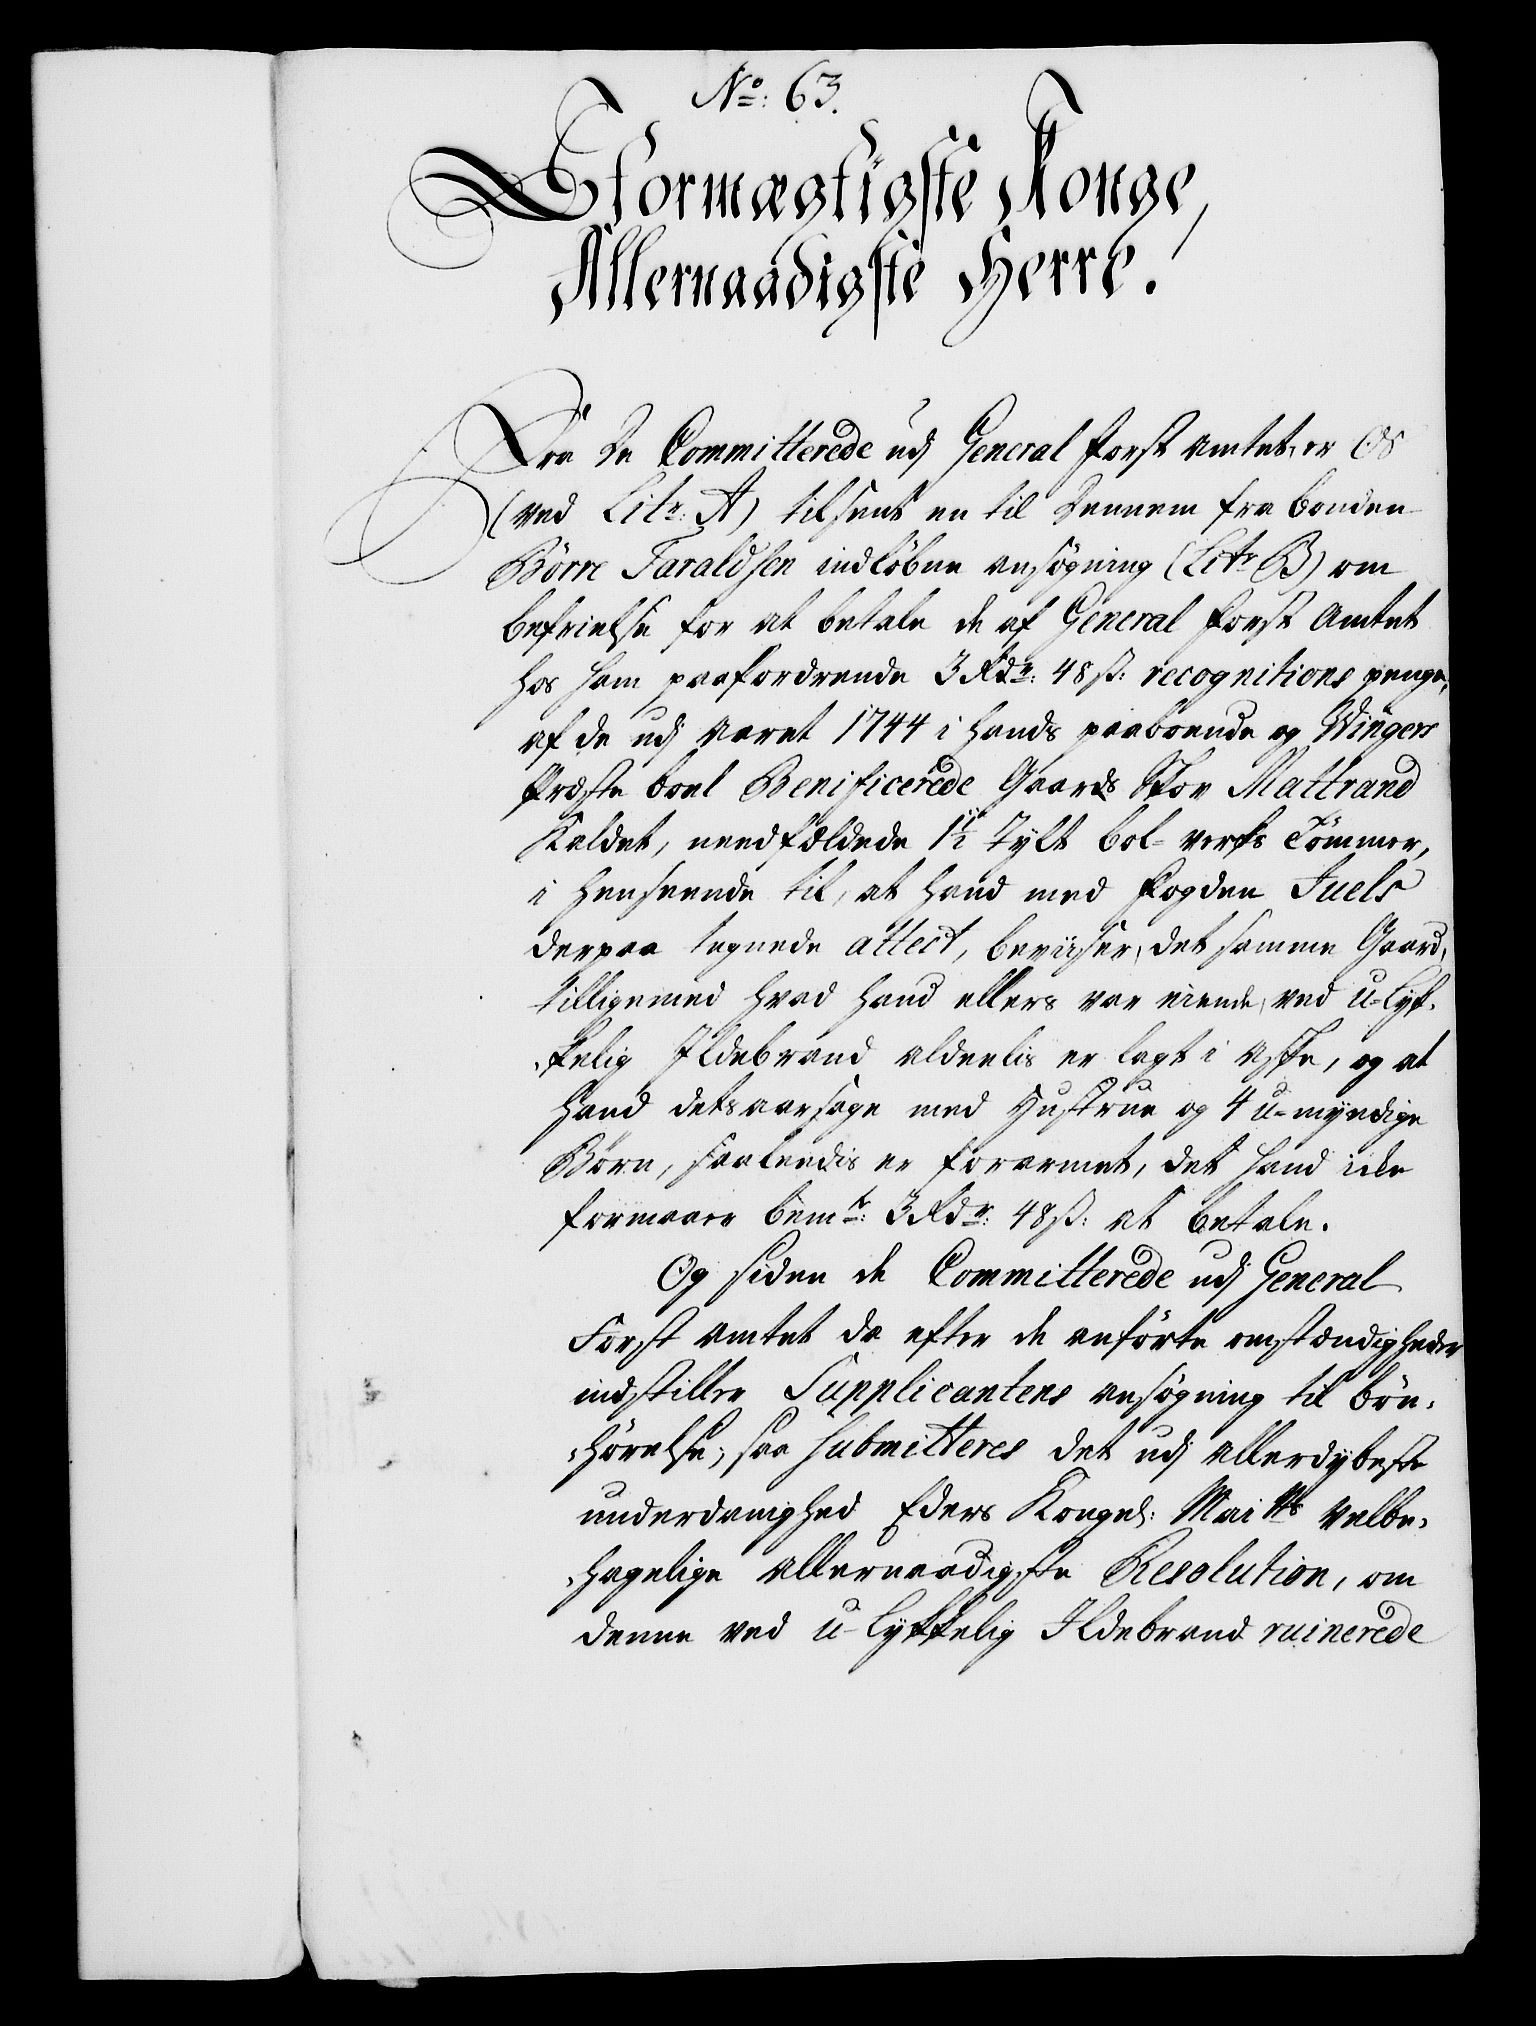 No: 63.
Stormægtigste Konge,
Allernaadigste Herre!
Fra De Committerede udj General Forst Amtet er Os
(ved Litr: A) tilsent en til Dennem fra bonden
Börre Taraldsen indløbne ansøgning (Litr B) om
befrielse for at betale de af General Forst Amtet
hos ham paafordrende 3 Rdr: 48 ß: recognitions penge,
af de udj Aaret 1744 i hands paaboende og Wingers
Præste boel Benificerede Gaards Skov Mattrand
Kaldet, needfældede 1½ Tylt bol-verks Tömmer,
i henseende til, at hand med Fogden Juels
derpaa tegnede attest, beviiser, det samme Gaard,
tilligemed hvad hand ellers var eiende, ved u-lyk-
-kelig Ildebrand aldeelis er lagt i Aske, og at
hand detsaarsage med Hustrue og 4 u-myndige
Börn, saaleedis er forarmet, det hand icke
formaaer bemte: 3 Rdr: 48 ß: at betale.
Og siden de Committerede udj General
Forst Amtet da efter de anförte omstændigheder
indstiller Supplicantens ansøgning til bön-
-hörelse, saa submitteres det udj allerdybeste
underdanighed Eders Kongel: Maitts velbe-
-hagelige allernaadigste Resolution, om
denne ved u-lykkelig Ildebrand ruinerede